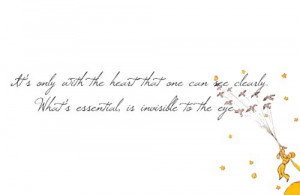 It's only with the heart that one can see clearly.
What's essential, is invisible to the eye.